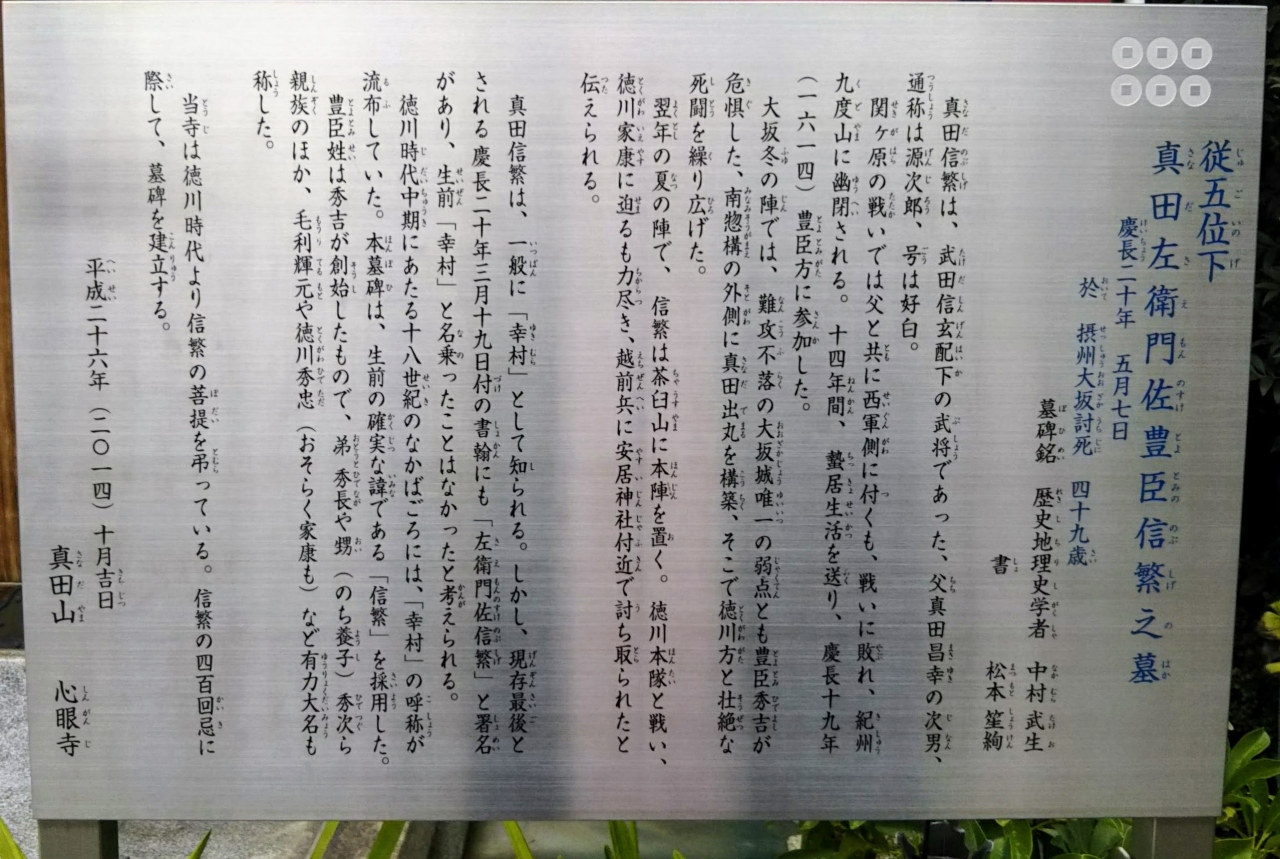 従五位下
真田左衛門佐豊臣信繁之墓
慶長二十年 五月七日
於 摂州大坂討死 四十九歳
墓碑銘 歴史地理史学者 中村武生
書 松本笙絢
真田信繁は、武田信玄配下の武将であった、父真田昌幸の次男、
通称は源次郎、号は好白。
関ヶ原の戦いでは父と共に西軍側に付くも、戦いに敗れ、紀州
九度山に幽閉される。十四年間、蟄居生活を送り、慶長十九年
(一六一四)豊臣方に参加した。
大坂冬の陣では、難攻不落の大坂城唯一の弱点とも豊臣秀吉が
危惧した、南惣構の外側に真田出丸を構築、そこで徳川方と壮絶な
死闘を繰り広げた。
翌年の夏の陣で、信繁は茶臼山に本陣を置く。徳川本隊と戦い、
徳川家康に迫るも力尽き、越前兵に安居神社付近で討ち取られたと
伝えられる。
真田信繁は、一般に「幸村」として知られる。しかし、現存最後と
される慶長二十年三月十九日付の書翰にも「左衛門佐信繁」と署名
があり、生前「幸村」と名乗ったことはなかったと考えられる。
徳川時代中期にあたる十八世紀のなかばごろには、「幸村」の呼称が
流布していた。本墓碑は、生前の確実な諱である「信繁」を採用した。
豊臣姓は秀吉が創始したもので、弟 秀長や甥(のち養子)秀次ら
親族のほか、毛利輝元や徳川秀忠(おそらく家康も)など有力大名も
称した。
当寺は徳川時代より信繁の菩提を弔っている。信繁の四百回忌に
際して、墓碑を建立する。
平成二十六年(二〇一四)十月吉日
真田山 心眼寺